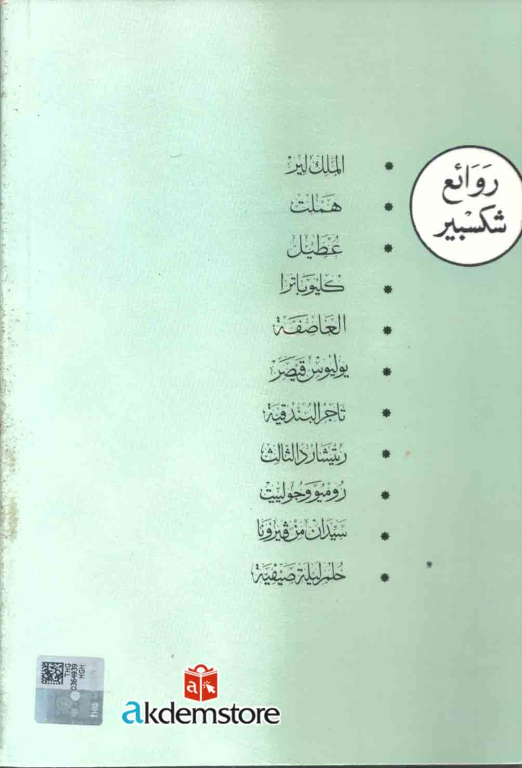 روائع
شكسبير
الملك لير
هملت
عطيل
كليوباترا
العاصفة
يوليوس قيصر
تاجر البندقية
ريتشارد الثالث
روميو وجولييت
سيدان من ڤيرونا
حلم ليلة صيفية
THG
0364939
HGH
THG
akdemstore